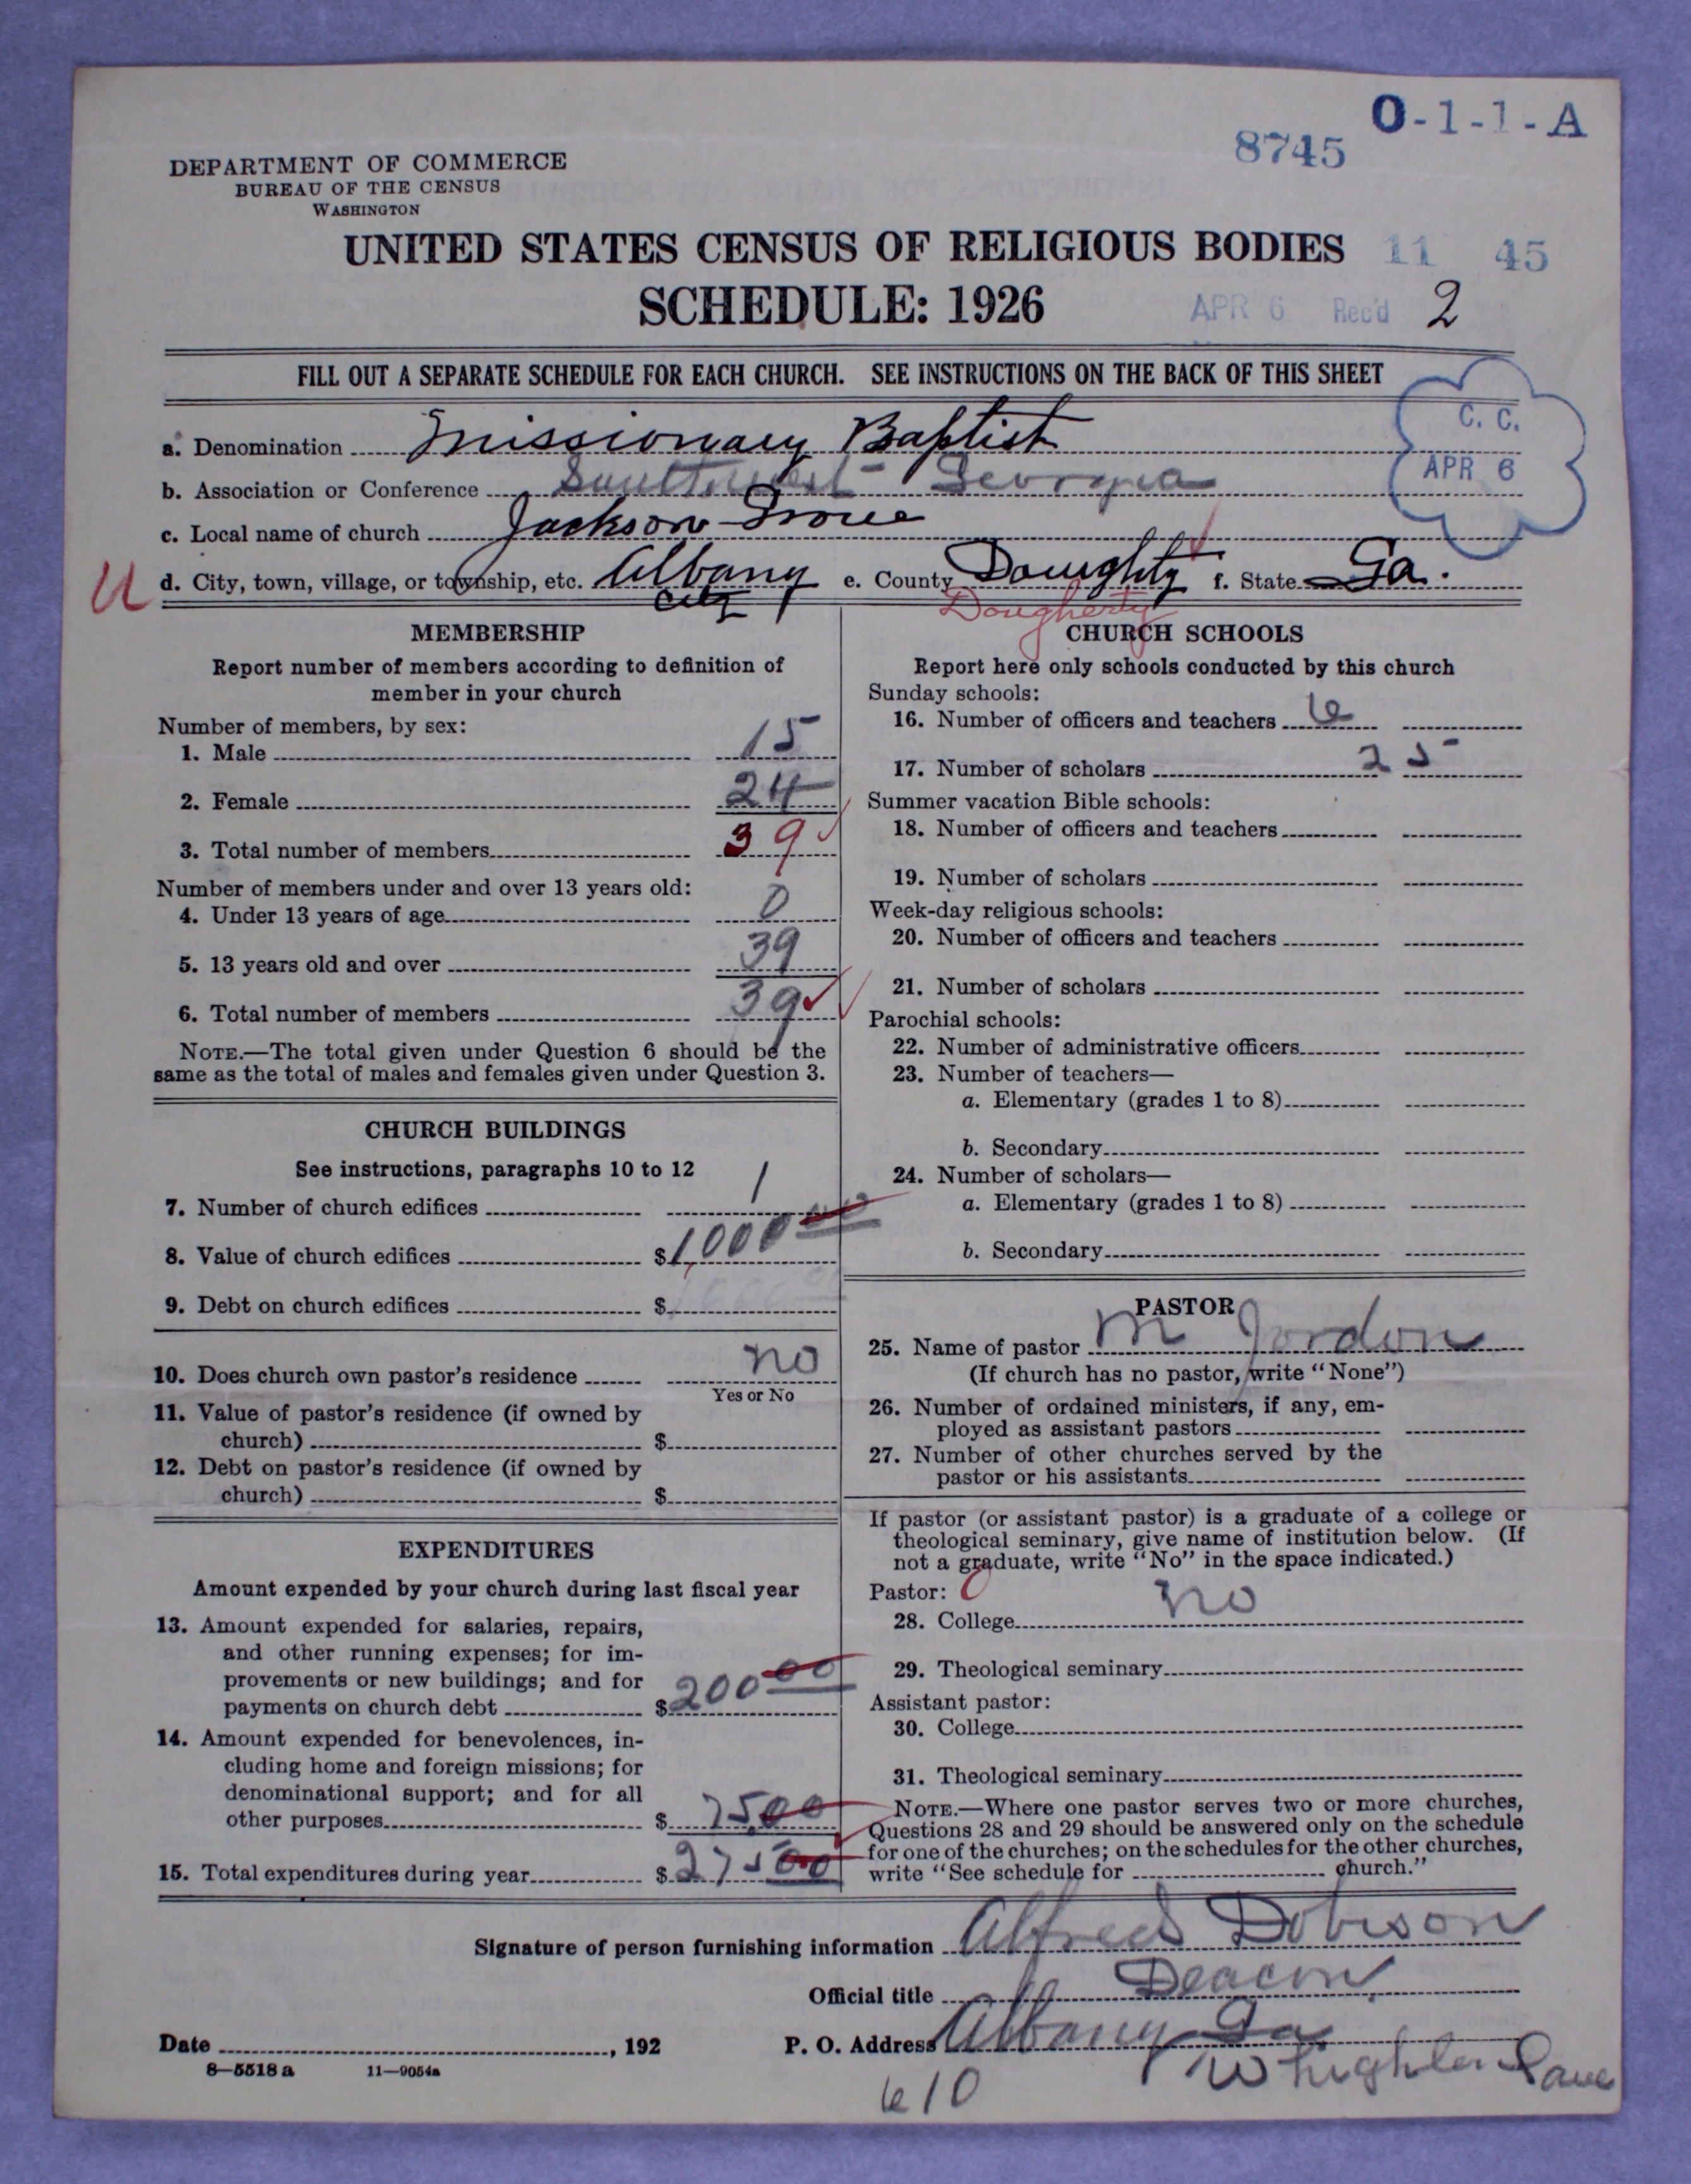 O-1-1-A
8745
DEPARTMENT OF COMMERCE
BUREAU OF THE CENSUS
WASHINGTON
UNITED STATES CENSUS OF RELIGIOUS BODIES 11 45
SCHEDULE: 1926
APR 6 Rec'd 2
FILL OUT A SEPARATE SCHEDULE FOR EACH CHURCH. SEE INSTRUCTIONS ON THE BACK OF THIS SHEET
C. C.
APR 6
a. Denomination Missionary Baptist
b. Association or Conference Southwest Georgia
c. Local name of church Jackson Grove
U d. City, town, village, or township, etc. Albany e. County Doughty f. State Ga.
City
Dougherty
MEMBERSHIP
Report number of members according to definition of
member in your church
Number of members, by sex:
1. Male 15
2. Female 24
3. Total number of members 39
Number of members under and over 13 years old:
4. Under 13 years of age 0
5. 13 years old and over 39
6. Total number of members 39
NOTE.—The total given under Question 6 should be the
same as the total of males and females given under Question 3.
CHURCH BUILDINGS
See instructions, paragraphs 10 to 12
7. Number of church edifices 1
8. Value of church edifices $1,000 00
9. Debt on church edifices $
10. Does church own pastor's residence no
Yes or No
11. Value of pastor's residence (if owned by
church) $
12. Debt on pastor's residence (if owned by
church) $
EXPENDITURES
Amount expended by your church during last fiscal year
13. Amount expended for salaries, repairs,
and other running expenses; for im-
provements or new buildings; and for
payments on church debt $200 00
14. Amount expended for benevolences, in-
cluding home and foreign missions; for
denominational support; and for all
other purposes $ 75.00
15. Total expenditures during year $275 00
CHURCH SCHOOLS
Report here only schools conducted by this church
Sunday schools:
16. Number of officers and teachers 6
17. Number of scholars 25
Summer vacation Bible schools:
18. Number of officers and teachers
19. Number of scholars
Week-day religious schools:
20. Number of officers and teachers
21. Number of scholars
Parochial schools:
22. Number of administrative officers
23. Number of teachers—
a. Elementary (grades 1 to 8)
b. Secondary
24. Number of scholars—
a. Elementary (grades 1 to 8)
b. Secondary
PASTOR
25. Name of pastor M Jordon
(If church has no pastor, write "None")
26. Number of ordained ministers, if any, em-
ployed as assistant pastors
27. Number of other churches served by the
pastor or his assistants
If pastor (or assistant pastor) is a graduate of a college or
theological seminary, give name of institution below. (If
not a graduate, write "No" in the space indicated.)
Pastor: 0
28. College no
29. Theological seminary
Assistant pastor:
30. College
31. Theological seminary
NOTE.—Where one pastor serves two or more churches,
Questions 28 and 29 should be answered only on the schedule
for one of the churches; on the schedules for the other churches,
write "See schedule for church."
Signature of person furnishing information Alfred Dobison
Official title Deacon
Date , 192 P. O. Address Albany Ga
8—5518 a 11—9054a
610 Lane